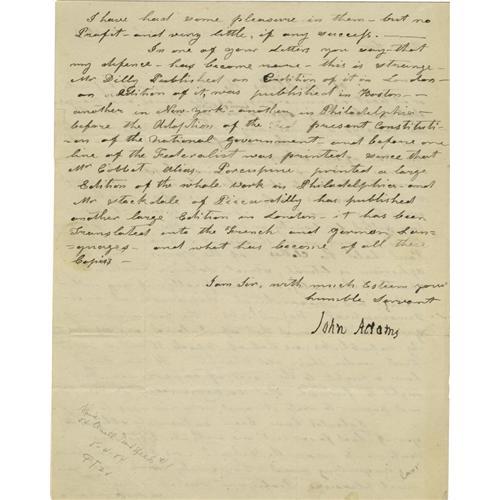 I have had some pleasure in them - but no
Profit - and very little, if any success. -
In one of your Letters you say - that
my defence - has become rare - this is strange -
Mr Dilly Published an Edition of it in London -
an Edition of it, was published in Boston -
another in New York - another in Philadelphia -
before the Adoption of the present Constituti-
-on of the National government and before one
line of the Federalist was printed, since that
Mr Cobbet, alias, Porcupine, printed a large
Edition of the whole work in Philadelphia - and
Mr Stockdale of Piccadilly has published
another large Edition in London - it has been
Translated into the French and German Lan-
=guages - and what has become of all these
Copies -
I am Sir, with much Esteem your
humble Servant
John Adams